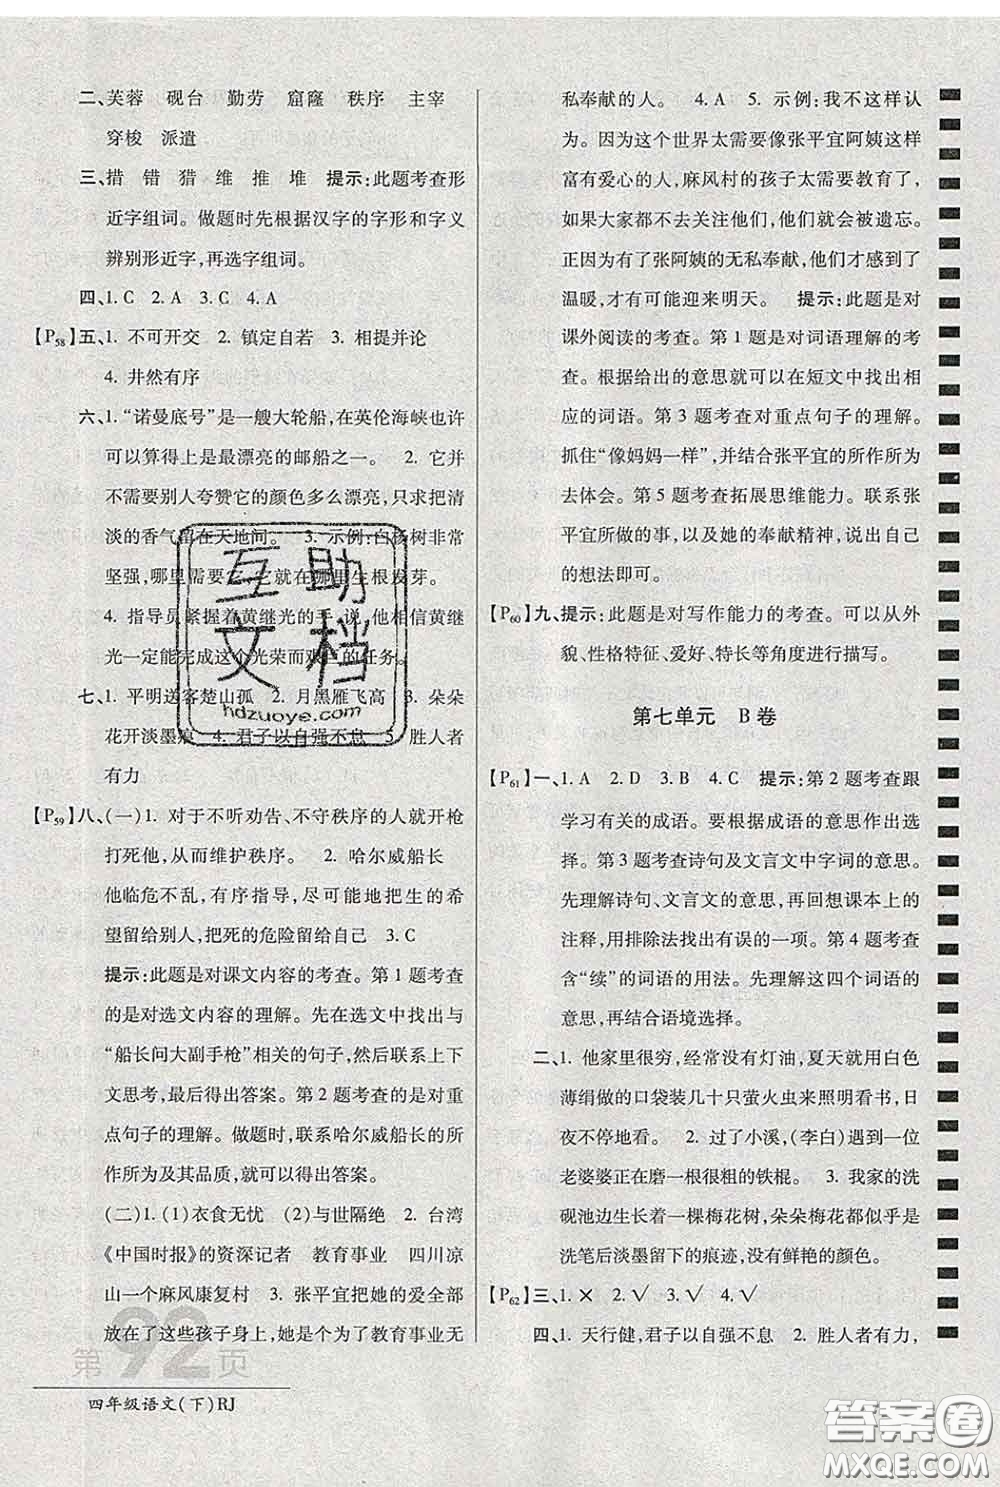 二、芙蓉 砚台 勤劳 窟窿 秩序 主宰
穿梭 派遣
三、措 错 猎 维 推 堆 提示:此题考查形
近字组词。做题时先根据汉字的字形和字义
辨别形近字,再选字组词。
四、1. C 2. A 3. C 4. A
【P58】五、1. 不可开交 2. 镇定自若 3. 相提并论
4. 井然有序
六、1.“诺曼底号”是一艘大轮船,在英伦海峡也许
可以算得上是最漂亮的邮船之一。 2. 它并
不需要别人夸赞它的颜色多么漂亮,只求把清
淡的香气留在天地间。 3. 示例:白杨树非常
坚强,哪里需要它,它就在哪里生根发芽。
4. 指导员紧握着黄继光的手,说,他相信黄继
光一定能完成这个光荣而艰巨的任务。
七、1. 平明送客楚山孤 2. 月黑雁飞高 3. 朵朵
花开淡墨痕 4. 君子以自强不息 5. 胜人者
有力
【P59】八、(一)1. 对于不听劝告、不守秩序的人就开枪
打死他,从而维护秩序。 2. 哈尔威船长
他临危不乱,有序指导,尽可能地把生的希
望留给别人,把死的危险留给自己 3. C
提示:此题是对课文内容的考查。第1题考查
的是对选文内容的理解。先在选文中找出与
“船长问大副手枪”相关的句子,然后联系上下
文思考,最后得出答案。第2题考查的是对重
点句子的理解。做题时,联系哈尔威船长的所
作所为及其品质,就可以得出答案。
(二)1. (1)衣食无忧 (2)与世隔绝 2. 台湾
《中国时报》的资深记者 教育事业 四川凉
山一个麻风康复村 3. 张平宜把爱全部
放在了这些孩子身上,她是个为了教育事业无
第92页
四年级语文(下)RJ
私奉献的人。 4. A 5. 示例:我不这样认
为。因为这个世界太需要像张平宜阿姨这样
富有爱心的人,麻风村的孩子太需要教育了,
如果大家都不去关注他们,他们就会被遗忘。
正因为有了张阿姨的无私奉献,他们才感到了
温暖,才有可能迎来明天。 提示:此题是对
课外阅读的考查。第1题是对词语理解的考
查。根据给出的意思就可以在短文中找出相
应的词语。第3题考查对重点句子的理解。
抓住“像妈妈一样”,并结合张平宜的所作所为
去体会。第5题考查拓展思维能力。联系张
平宜所做的事,以及她的奉献精神,说出自己
的想法即可。
【P60】九、提示:此题是对写作能力的考查。可以从外
貌、性格特征、爱好、特长等角度进行描写。
第七单元 B卷
【P61】一、1. A 2. D 3. B 4. C 提示:第2题考查跟
学习有关的成语。要根据成语的意思作出选
择。第3题考查诗句及文言文中字词的意思。
先理解诗句、文言文的意思,再回想课本上的
注释,用排除法找出有误的一项。第4题考查
含“续”的词语的用法。先理解这四个词语的
意思,再结合语境选择。
二、1. 他家里很穷,经常没有灯油,夏天就用白色
薄绢做的口袋装几十只萤火虫来照明看书,日
夜不停地看。 2. 过了小溪,(李白)遇到一位
老婆婆正在磨一根很粗的铁棍。 3. 我家的洗
砚池边生长着一棵梅花树,朵朵梅花都似乎是
洗笔后淡墨留下的痕迹,没有鲜艳的颜色。
【P62】三、1. × 2. √ 3. √ 4. √
四、1. 天行健,君子以自强不息 2. 胜人者有力,
互助文档
hdzuoye.com
答案卷
MXQE.COM